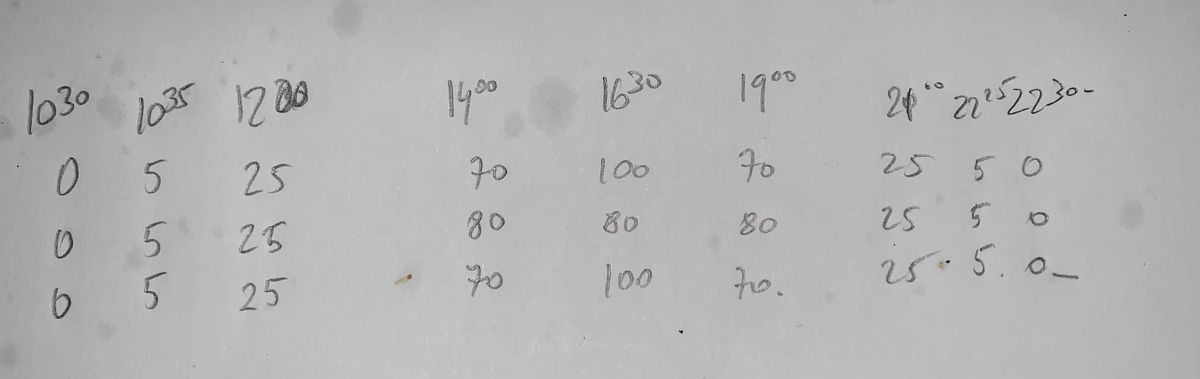 10³⁰ 10³⁵ 12⁰⁰ 14⁰⁰ 16³⁰ 19⁰⁰ 21⁰⁰ 22²⁵ 22³⁰-
0 5 25 70 100 70 25 5 0
0 5 25 80 80 80 25 5 0
0 5 25 70 100 70. 25. 5. 0_